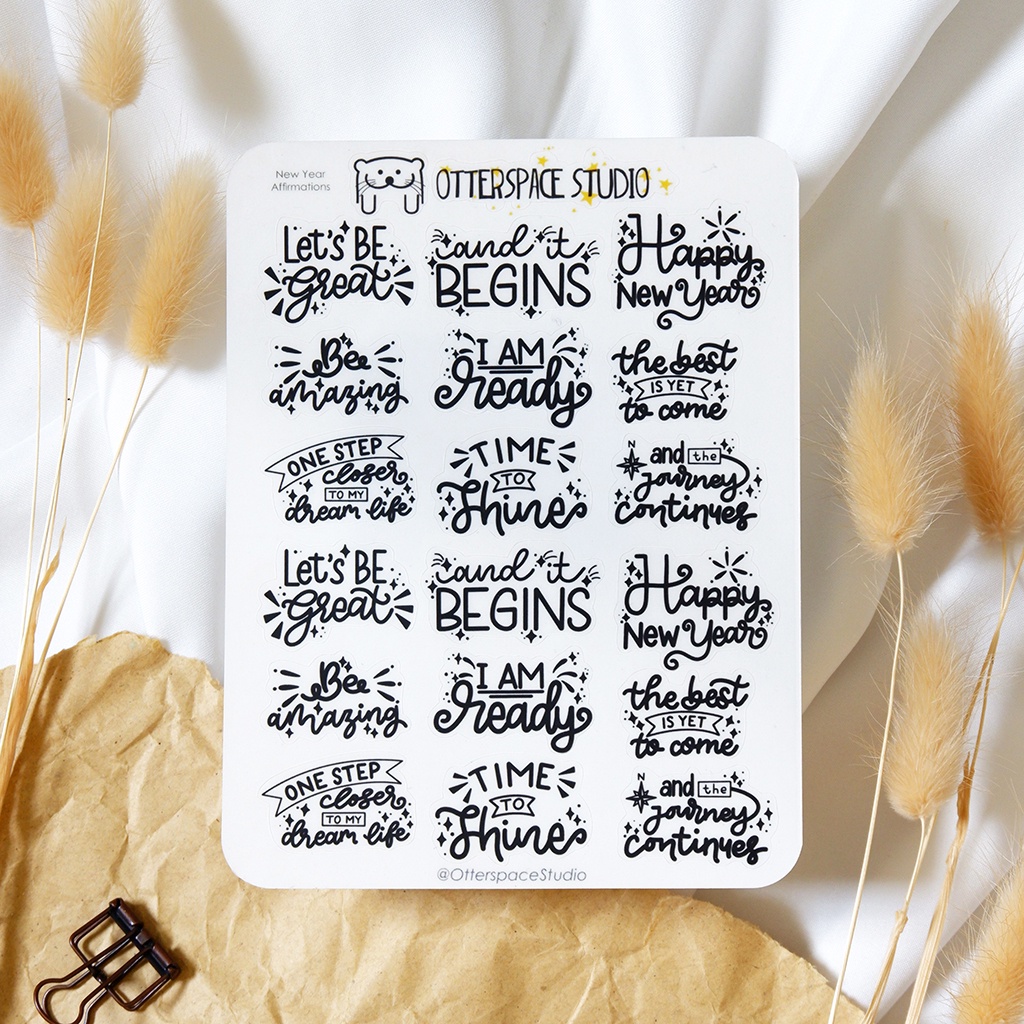 New Year
Affirmations
OTTERSPACE STUDIO
Let's BE
Great
and it
BEGINS
Happy
New Year
Be
amazing
I AM
ready
the best
IS YET
to come
ONE STEP
closer
TO MY
dream life
TIME
TO
Shine
N
and the
journey
continues
Let's BE
Great
and it
BEGINS
Happy
New Year
Be
amazing
I AM
ready
the best
IS YET
to come
ONE STEP
closer
TO MY
dream life
TIME
TO
Shine
N
and the
journey
continues
@OtterspaceStudio